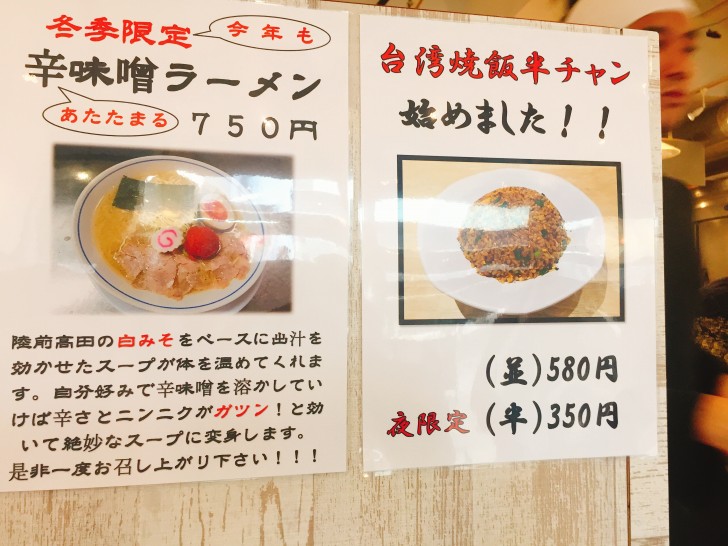 冬季限定
今年も
辛味噌ラーメン
あたたまる
750円
陸前高田の白みそをベースに出汁を
効かせたスープが体を温めてくれま
す。自分好みで辛味噌を溶かしてい
けば辛さとニンニクがガツン！と効
いて絶妙なスープに変身します。
是非一度お召し上がり下さい！！！
台湾焼飯半チャン
始めました！！
(並)580円
夜限定 (半)350円